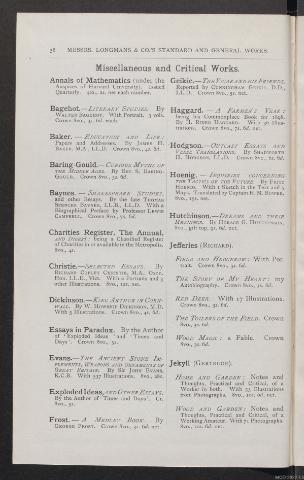 38 MESSRS. LONGMANS & CO.'S STANDARD AND GENERAL WORKS.
Miscellaneous and Critical Works.
Annals of Mathematics (under the
Auspices of Harvard University). Issued
Quarterly. 4to., 2s. net each number.
Bagehot.—LITERARY STUDIES. By
WALTER BAGEHOT. With Portrait. 3 vols.
Crown 8vo., 3s. 6d. each.
Baker.—EDUCATION AND LIFE:
Papers and Addresses. By JAMES H.
BAKER, M.A., LL.D. Crown 8vo., 4s. 6d.
Baring-Gould.—CURIOUS MYTHS OF
THE MIDDLE AGES. By Rev. S. BARING-
GOULD. Crown 8vo., 3s. 6d.
Baynes.—SHAKESPEARE STUDIES,
and other Essays. By the late THOMAS
SPENCER BAYNES, LL.B., LL.D. With a
Biographical Preface by Professor LEWIS
CAMPBELL. Crown 8vo., 7s. 6d.
Charities Register, The Annual,
AND DIGEST: being a Classified Register
of Charities in or available in the Metropolis.
4s.
Christie.—SELECTED ESSAYS. By
RICHARD COPLEY CHRISTIE, M.A., Oxon.
Hon. LL.D., Vict. With 2 Portraits and 3
other Illustrations. 8vo., 12s. net.
Dickinson.—KING ARTHUR IN CORN-
WALL. By W. HOWSHIP DICKINSON, M.D.
With 5 Illustrations. Crown 8vo., 4s. 6d.
Essays in Paradox. By the Author
of 'Exploded Ideas' and 'Times and
Days'. Crown 8vo., 5s.
Evans.—THE ANCIENT STONE IM-
PLEMENTS, WEAPONS AND ORNAMENTS OF
GREAT BRITAIN. By Sir JOHN EVANS,
K.C.B. With 537 Illustrations. 8vo., 28s.
Exploded Ideas, AND OTHER ESSAYS.
By the Author of 'Times and Days'. Cr.
8vo., 5s.
Frost.—A MEDLEY BOOK. By
GEORGE FROST. Crown 8vo., 3s. 6d. net.
Geikie.—THE VICAR AND HIS FRIENDS.
Reported by CUNNINGHAM GEIKIE, D.D.,
LL.D. Crown 8vo., 5s. net.
Haggard.—A FARMER'S YEAR:
being his Commonplace Book for 1898.
By H. RIDER HAGGARD. With 36 Illus-
trations. Crown 8vo., 7s. 6d. net.
Hodgson.—OUTCAST ESSAYS AND
VERSE TRANSLATIONS. By SHADWORTH
H. HODGSON, LL.D. Crown 8vo., 8s. 6d.
Hoenig.—INQUIRIES CONCERNING
THE TACTICS OF THE FUTURE. By FRITZ
HOENIG. With 1 Sketch in the Text and 5
Maps. Translated by Captain H. M. BOWER.
8vo., 15s. net.
Hutchinson.—DREAMS AND THEIR
MEANINGS. By HORACE G. HUTCHINSON.
8vo., gilt top, 9s. 6d. net.
Jefferies (RICHARD).
FIELD AND HEDGEROW: With Por-
trait. Crown 8vo., 3s. 6d.
THE STORY OF MY HEART: my
Autobiography. Crown 8vo., 3s. 6d.
RED DEER. With 17 Illustrations.
Crown 8vo., 3s. 6d.
THE TOILERS OF THE FIELD. Crown
8vo., 3s. 6d.
WOOD MAGIC: a Fable. Crown
8vo., 3s. 6d.
Jekyll (GERTRUDE).
HOME AND GARDEN: Notes and
Thoughts, Practical and Critical, of a
Worker in both. With 53 Illustrations
from Photographs. 8vo., 10s. 6d. net.
WOOD AND GARDEN: Notes and
Thoughts, Practical and Critical, of a
Working Amateur. With 71 Photographs.
8vo., 10s. 6d. net.